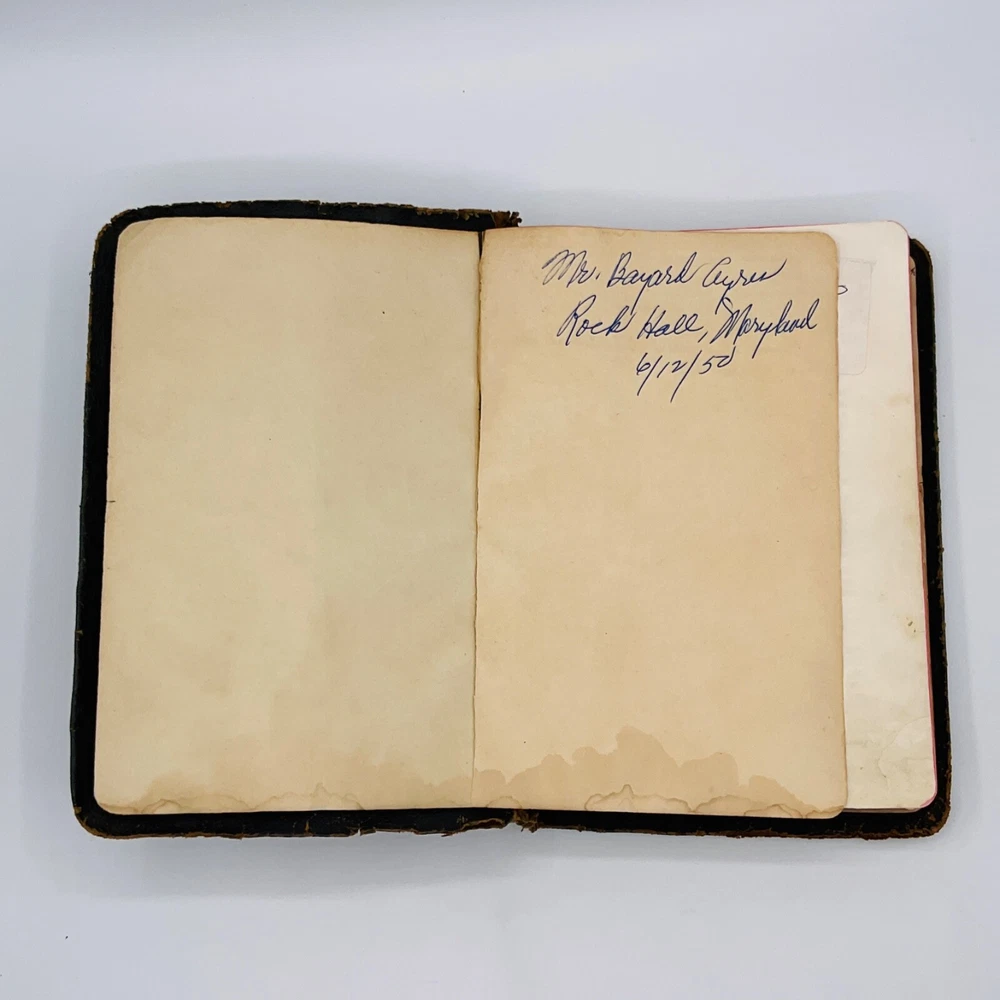 Mr. Bayard Ayres
Rock Hall, Maryland
6/12/50